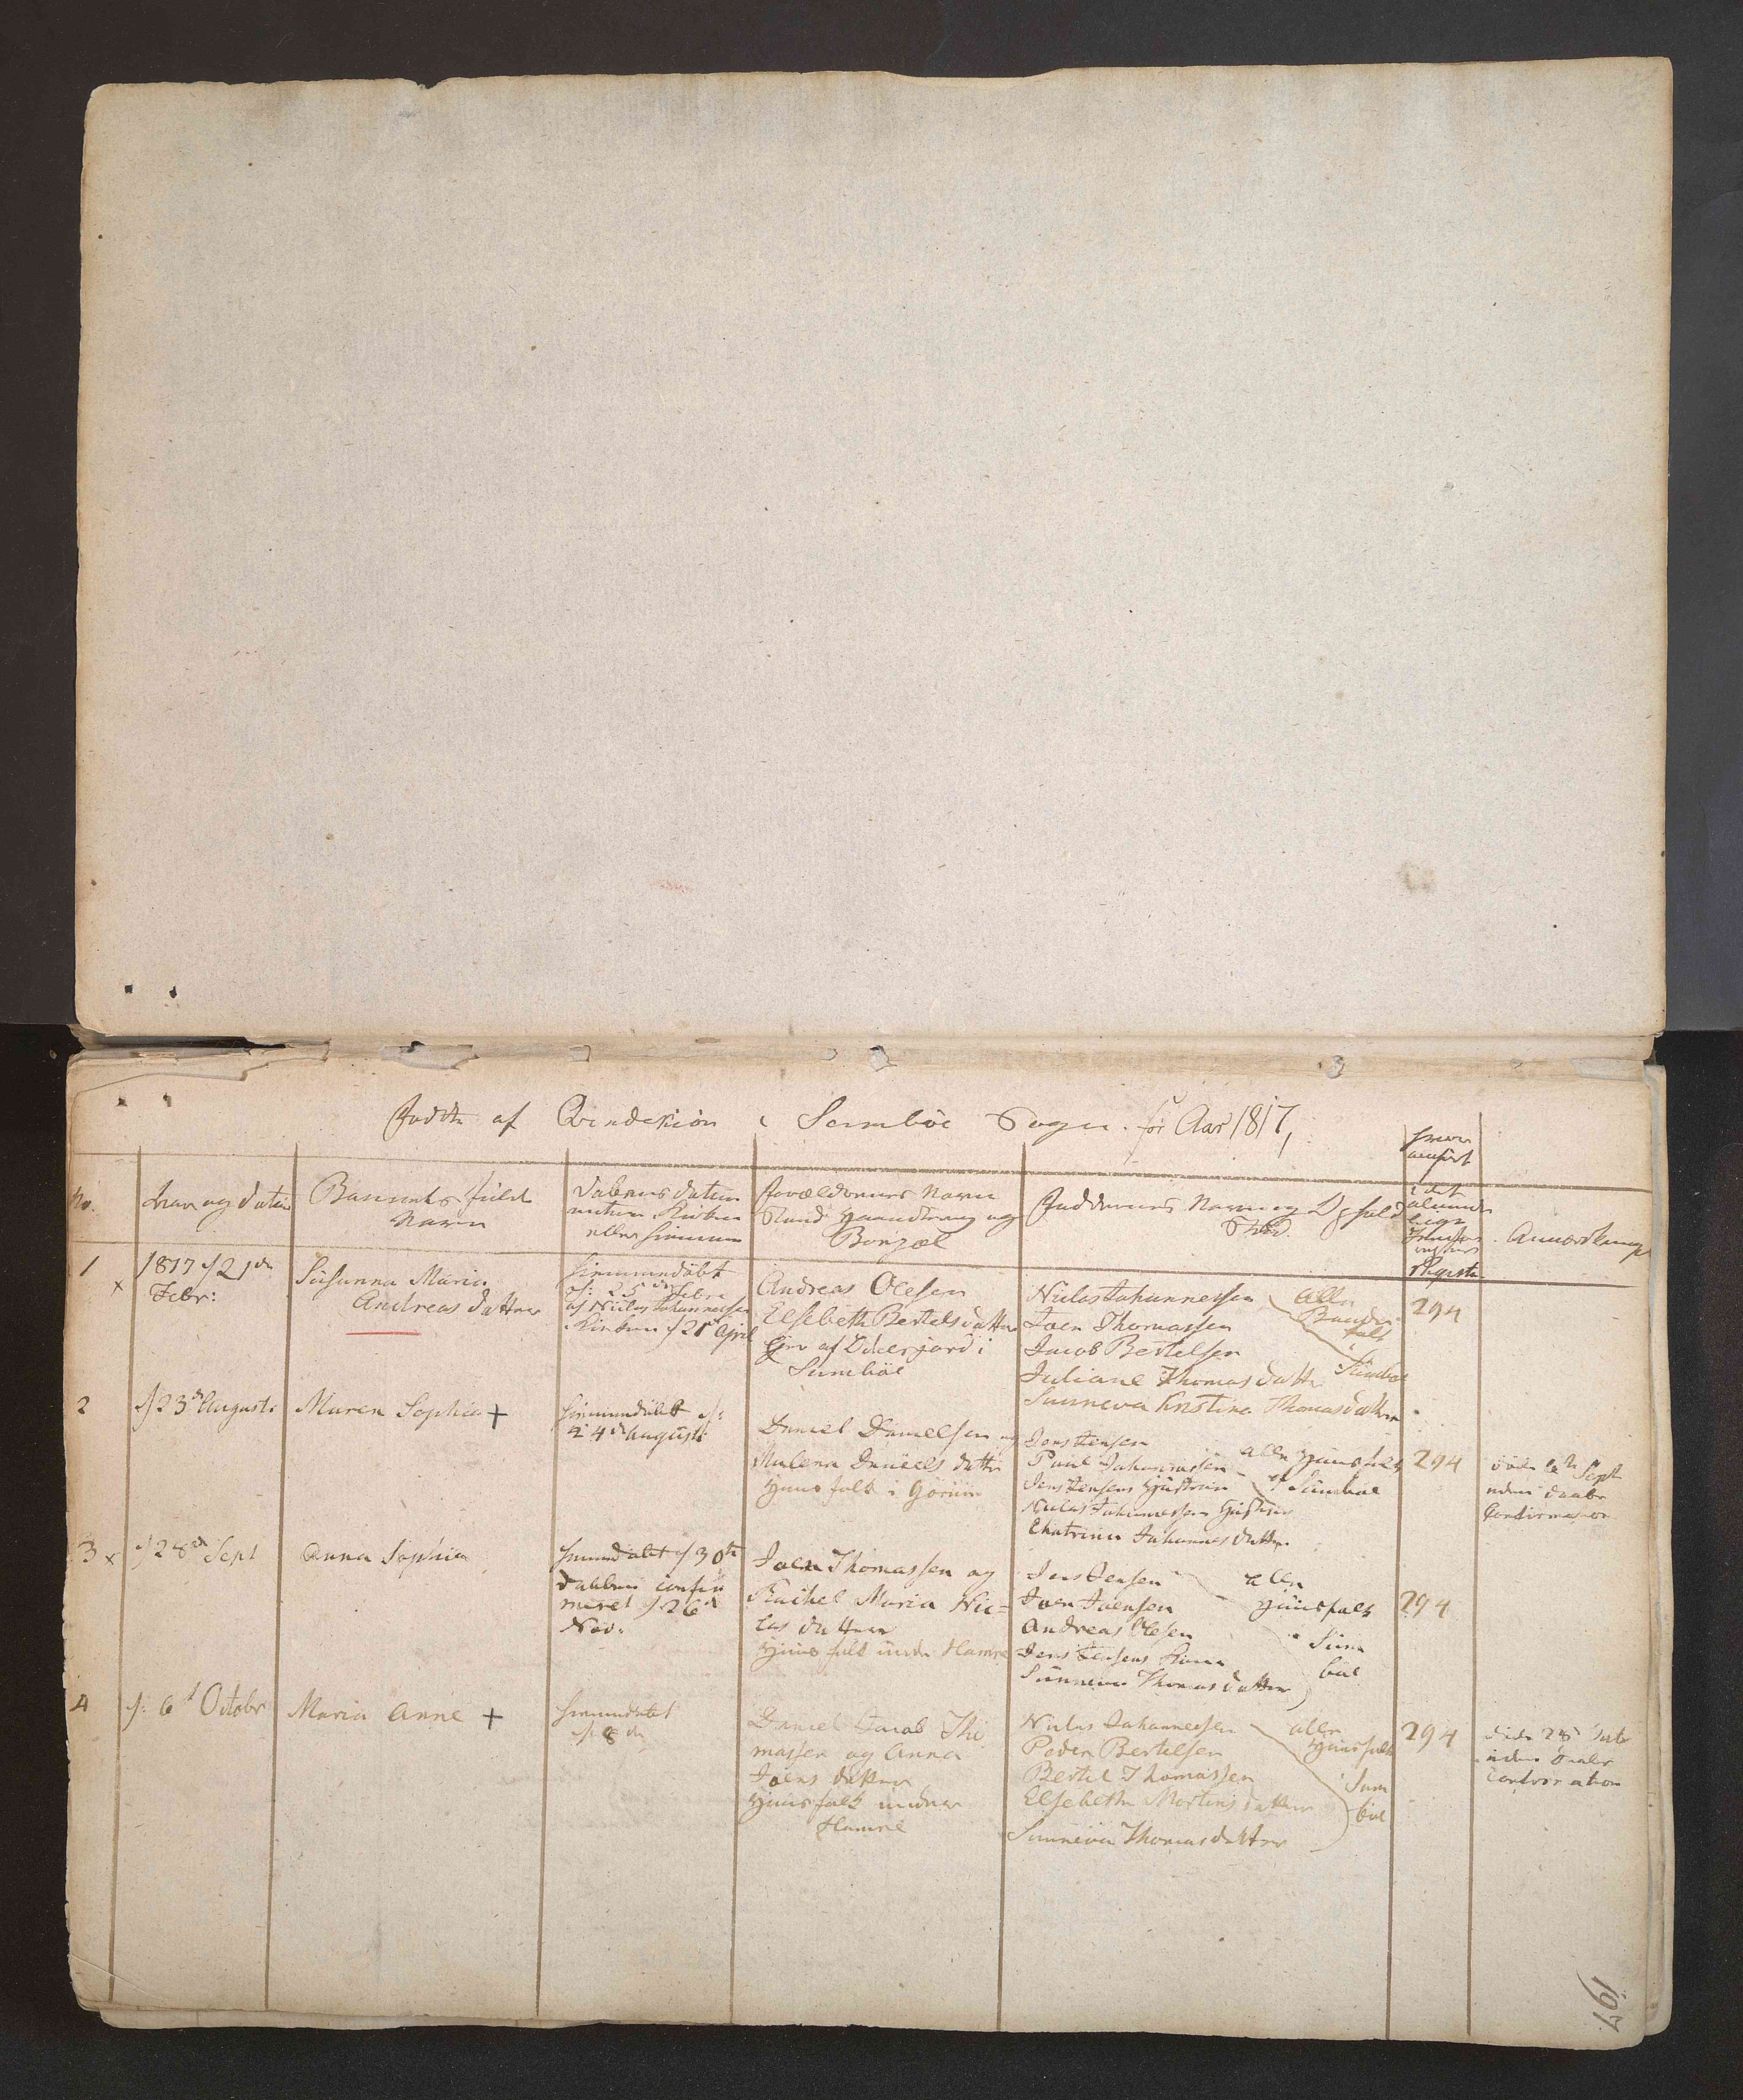 Fødte af Qvindekiøn i Sumböe Sogn. for Aar 1817,
No.
Aar og Datum
Barnets fulde
Navn
Daabens Datum
enten Kirken
eller hiemme
Forældrenes Navn
Stand Haandtering og
Boepæl
Faddernes Navn og
Stand.
hvor
anført
i det
alminde
lige
Jevnførelses
Register
Anmærkninger
1
x
1817 d 21de
Febr:
Susanna Maria
Andreas datter
hiemmedöbt
d: 25de Febr
af Niclas Johannessen
Kirken d 21de April
Andreas Olesen
Elsebeth Bertelsdatter
Sumböe
Niclas Johannessen
Joen Thomassen
Jacob Bertelsen
Juliane Thomasdatter
Sunneva Kristina Thomasdatter
alle
Bonder
folk
Sumböe
294
2
d 23de Augusti
Maren Sophia +
hiemmedöbt d:
24de Augusti
Daniel Danielsen og
Malena Daniels datter
Huusfolk i Görum
Jens Jensen
Paul Johannessen
Jens Jensens Hustrue
Niclas Johannessens Hustrue
Chatrina Johannes datter
alle Huusfolk
i Sumböe
294
döde 6te Sept
uden Daabs
Confirmation
3 x
d 28de Sept
Anna Sophia
hiemmedöbt d 30te
Daaben confir
meret d 26de
Nov:
Joen Thomassen og
Rachel Maria Nic=
las datter
Huusfolk under Hamre
Jens Jensen
Joen Joensen
Andreas Olesen
Jens Jensens Kone
Sunneva Thomasdatter
alle
Huusfolk
i Sum
böe
294
4
d: 6te Octobr
Maria Anne +
hiemmedöbt
d: 8de
Daniel Jacob Tho
massen og Anna
Joens datter
Huusfolk under
Hamre
Niclas Johannessen
Peder Bertelsen
Bertel Thomassen
Elsebeth Mortens datter
Sunneva Thomasdatter
alle
Huusfolk
i Sum
böe
294
döde 28de Octobr
uden Daabs
Confirmation
197